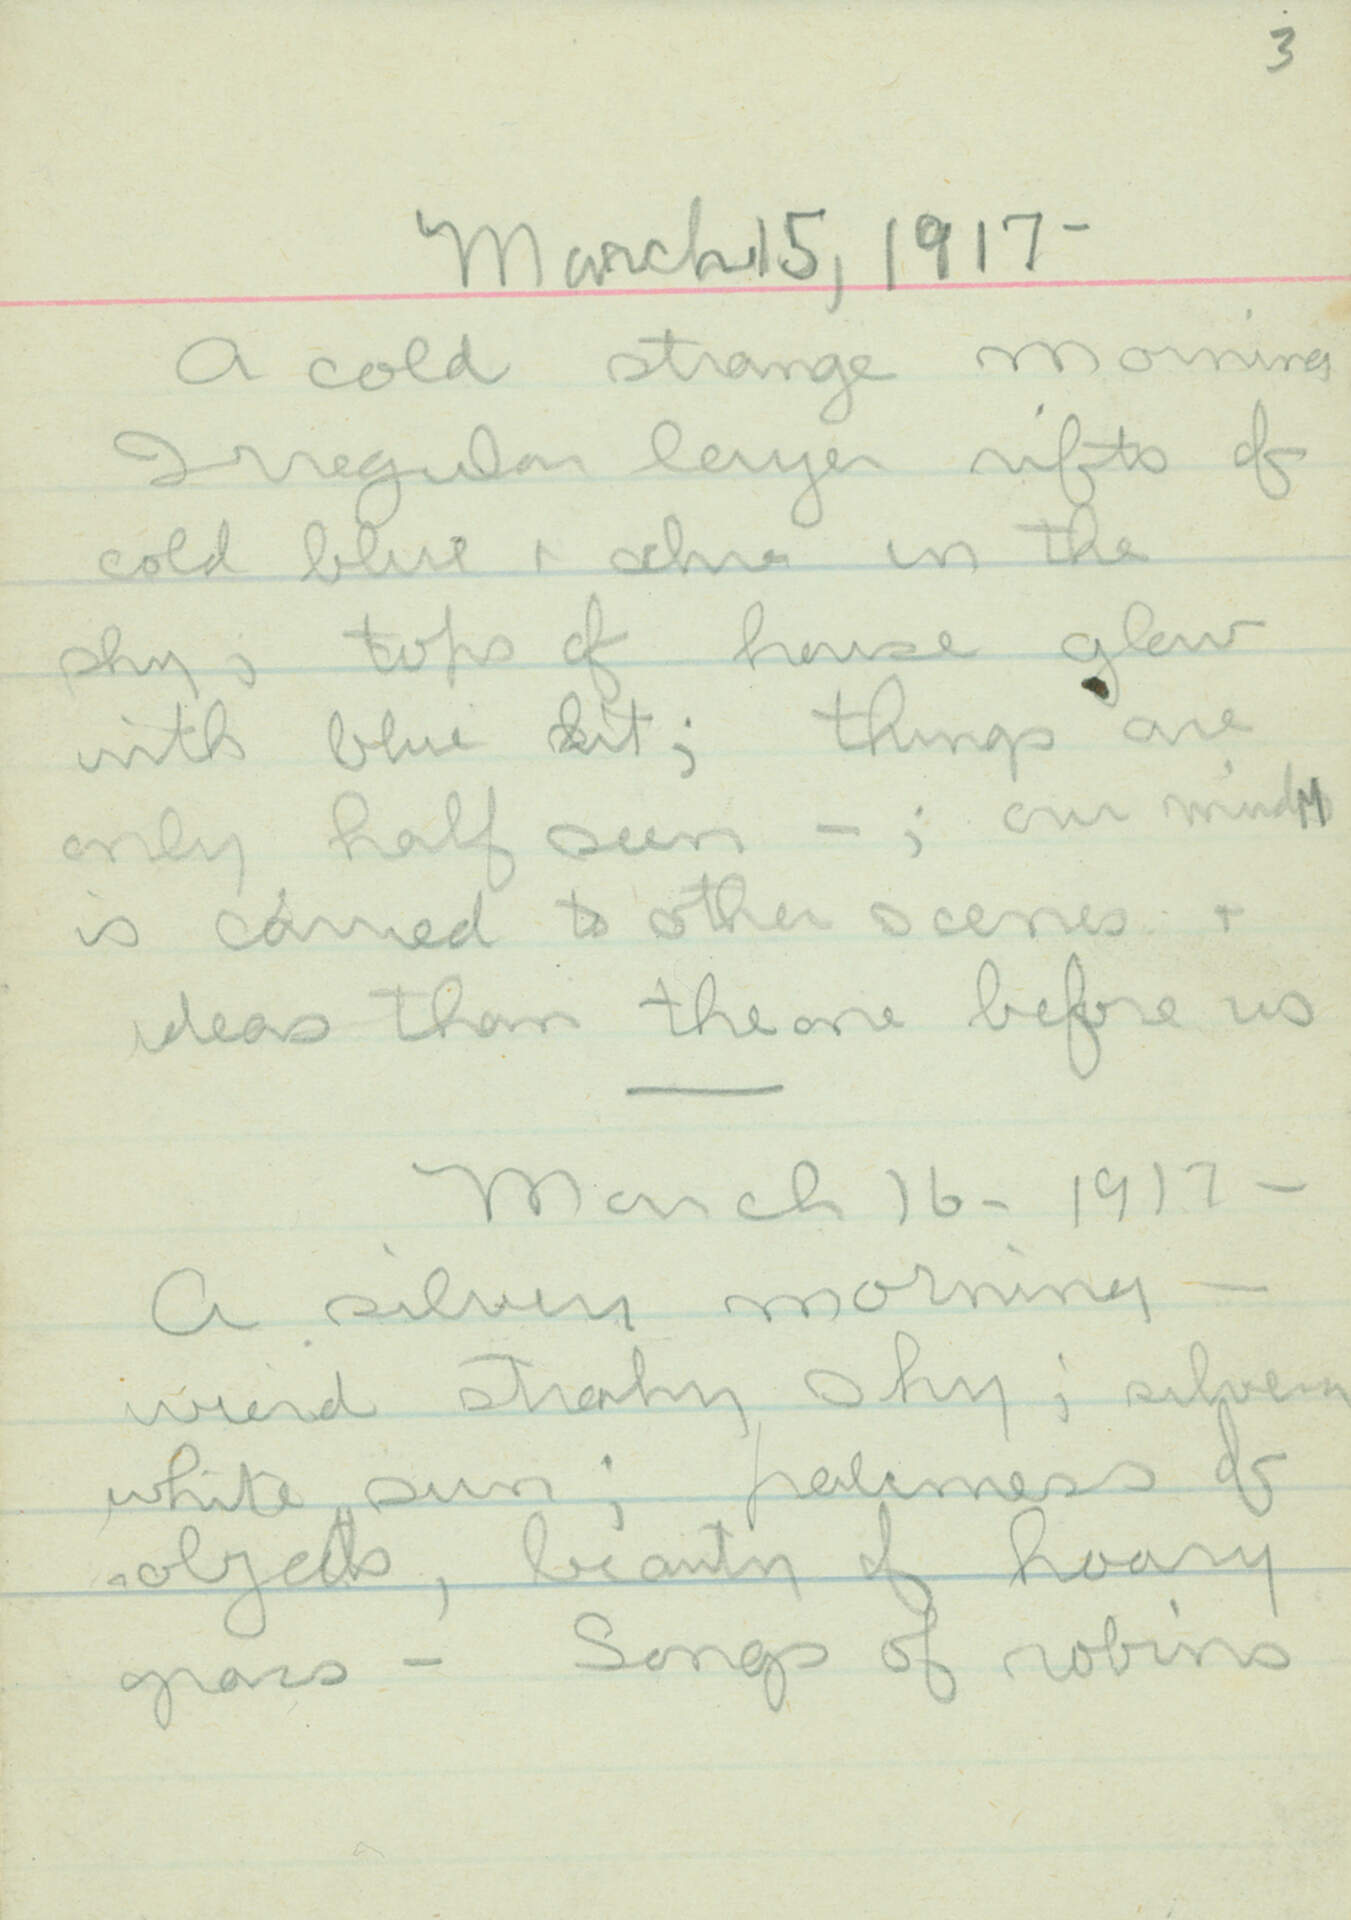 3
March 15, 1917-
A cold strange morning
Irregular layer rifts of
cold blue + in the
sky; tops of house glow
with blue lit; things are
only half seen - ; our mind
is carried to other scenes +
ideas than the one before us
March 16 - 1917 -
A silvery morning -
weird streaky sky; silvery
white sun; paleness of
objects, beauty of hoary
grass - Songs of robins